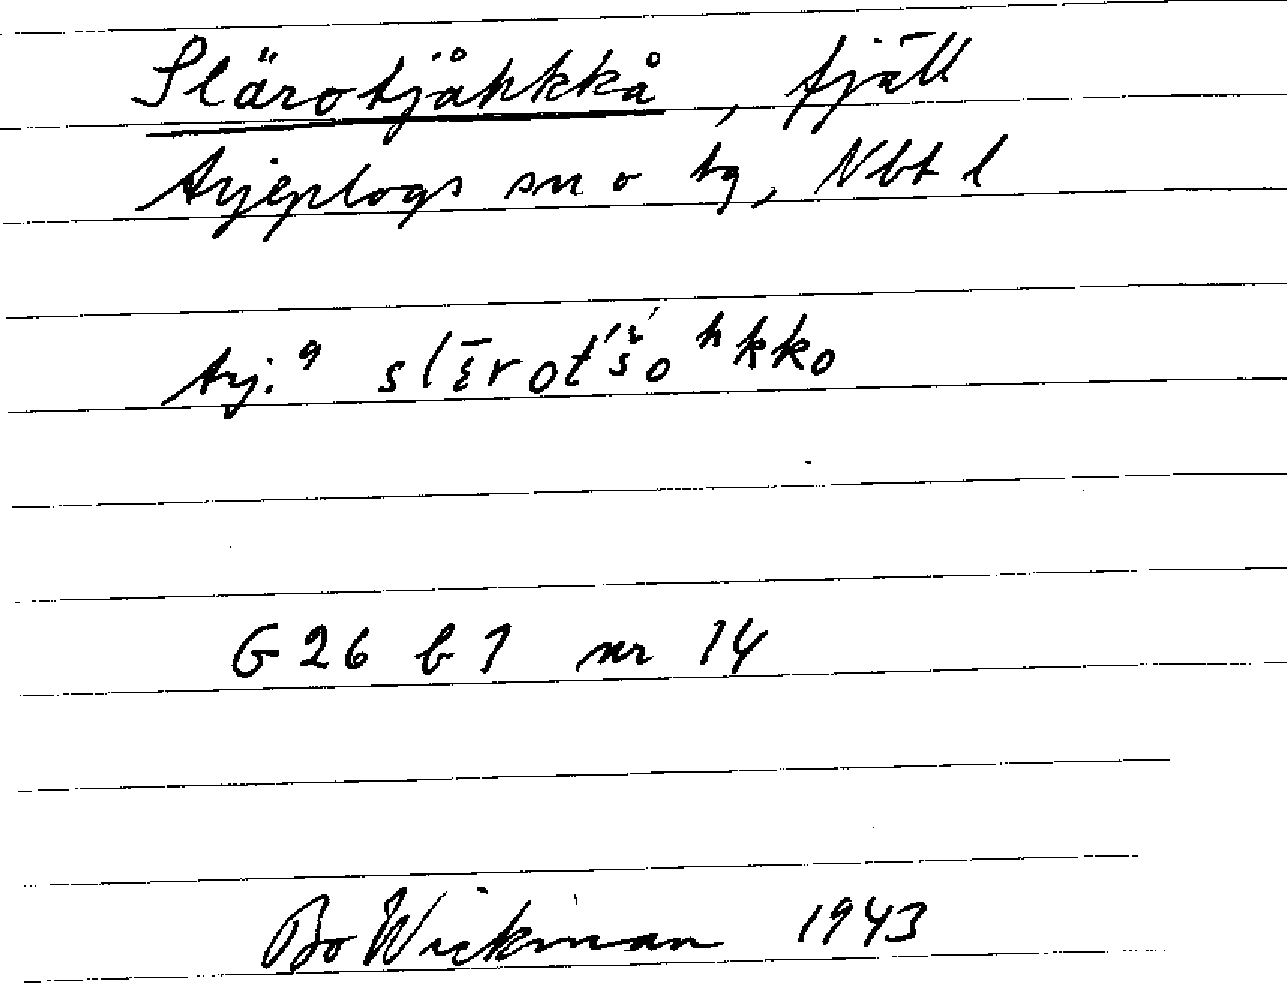 Slärotjåhkkå, fjäll
Arjeplogs sn o tg, Nbt l
Arj. 9 slɛ̄rot́š́oʰkko
G 26 b 1 nr 14
Bo Wickman 1943